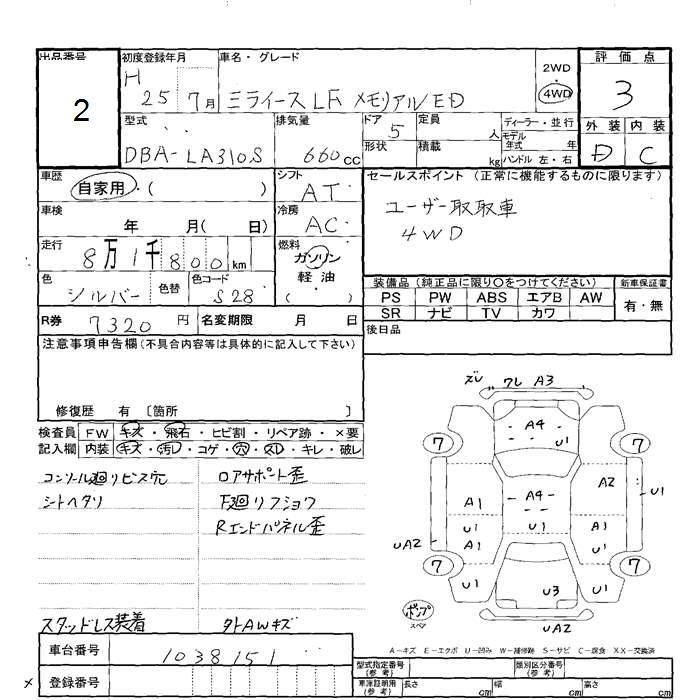 出品番号
2
初度登録年月
H 25 7月
車名・グレード
ミライースLf メモリアルED
2WD
4WD
評価点
3
外装 内装
D C
型式
DBA-LA310S
排気量
660cc
ドア 5
形状
定員 人
積載 kg
ディーラー・並行
モデル年式 年
ハンドル 左・右
車歴
自家用・( )
シフト
AT
セールスポイント (正常に機能するものに限ります)
ユーザー買取車
4WD
車検
年 月( 日)
冷房
AC
走行
8万1千800km
燃料
ガソリン
軽油
( )
色
シルバー
色替
色コード
S28
装備品 (純正品に限り○をつけてください)
新車保証書
PS PW ABS エアB AW
有・無
SR ナビ TV カワ
R券 7320円
名変期限 月 日
後日品
注意事項申告欄(不具合内容等は具体的に記入して下さい)
修復歴 有 〔箇所 〕
検査員 FW キズ・飛石・ヒビ割・リペア跡・×要
記入欄 内装 キズ・汚レ・コゲ・穴・スレ・キレ・破レ
コンソール廻りビス穴
シートヘタリ
ロアサポート歪
下廻リフショク
Rエンドパネル歪
スタッドレス装着
タトAWキズ
ズレ ワレ A3
A4
U1
7
7
A2
U1
A1
A4
U1
U1
A1
A1
U1
UA2
7
7
U1
U3
U1
UA2
ポンプ
スペア
A－キズ E－エクボ U－凹み W－補修跡 S－サビ C－腐食 XX－交換済
車台番号
1038151
登録番号
×
型式指定番号(参考)
類別区分番号(参考)
車庫証明用(参考)
長さ cm
幅 cm
高さ cm